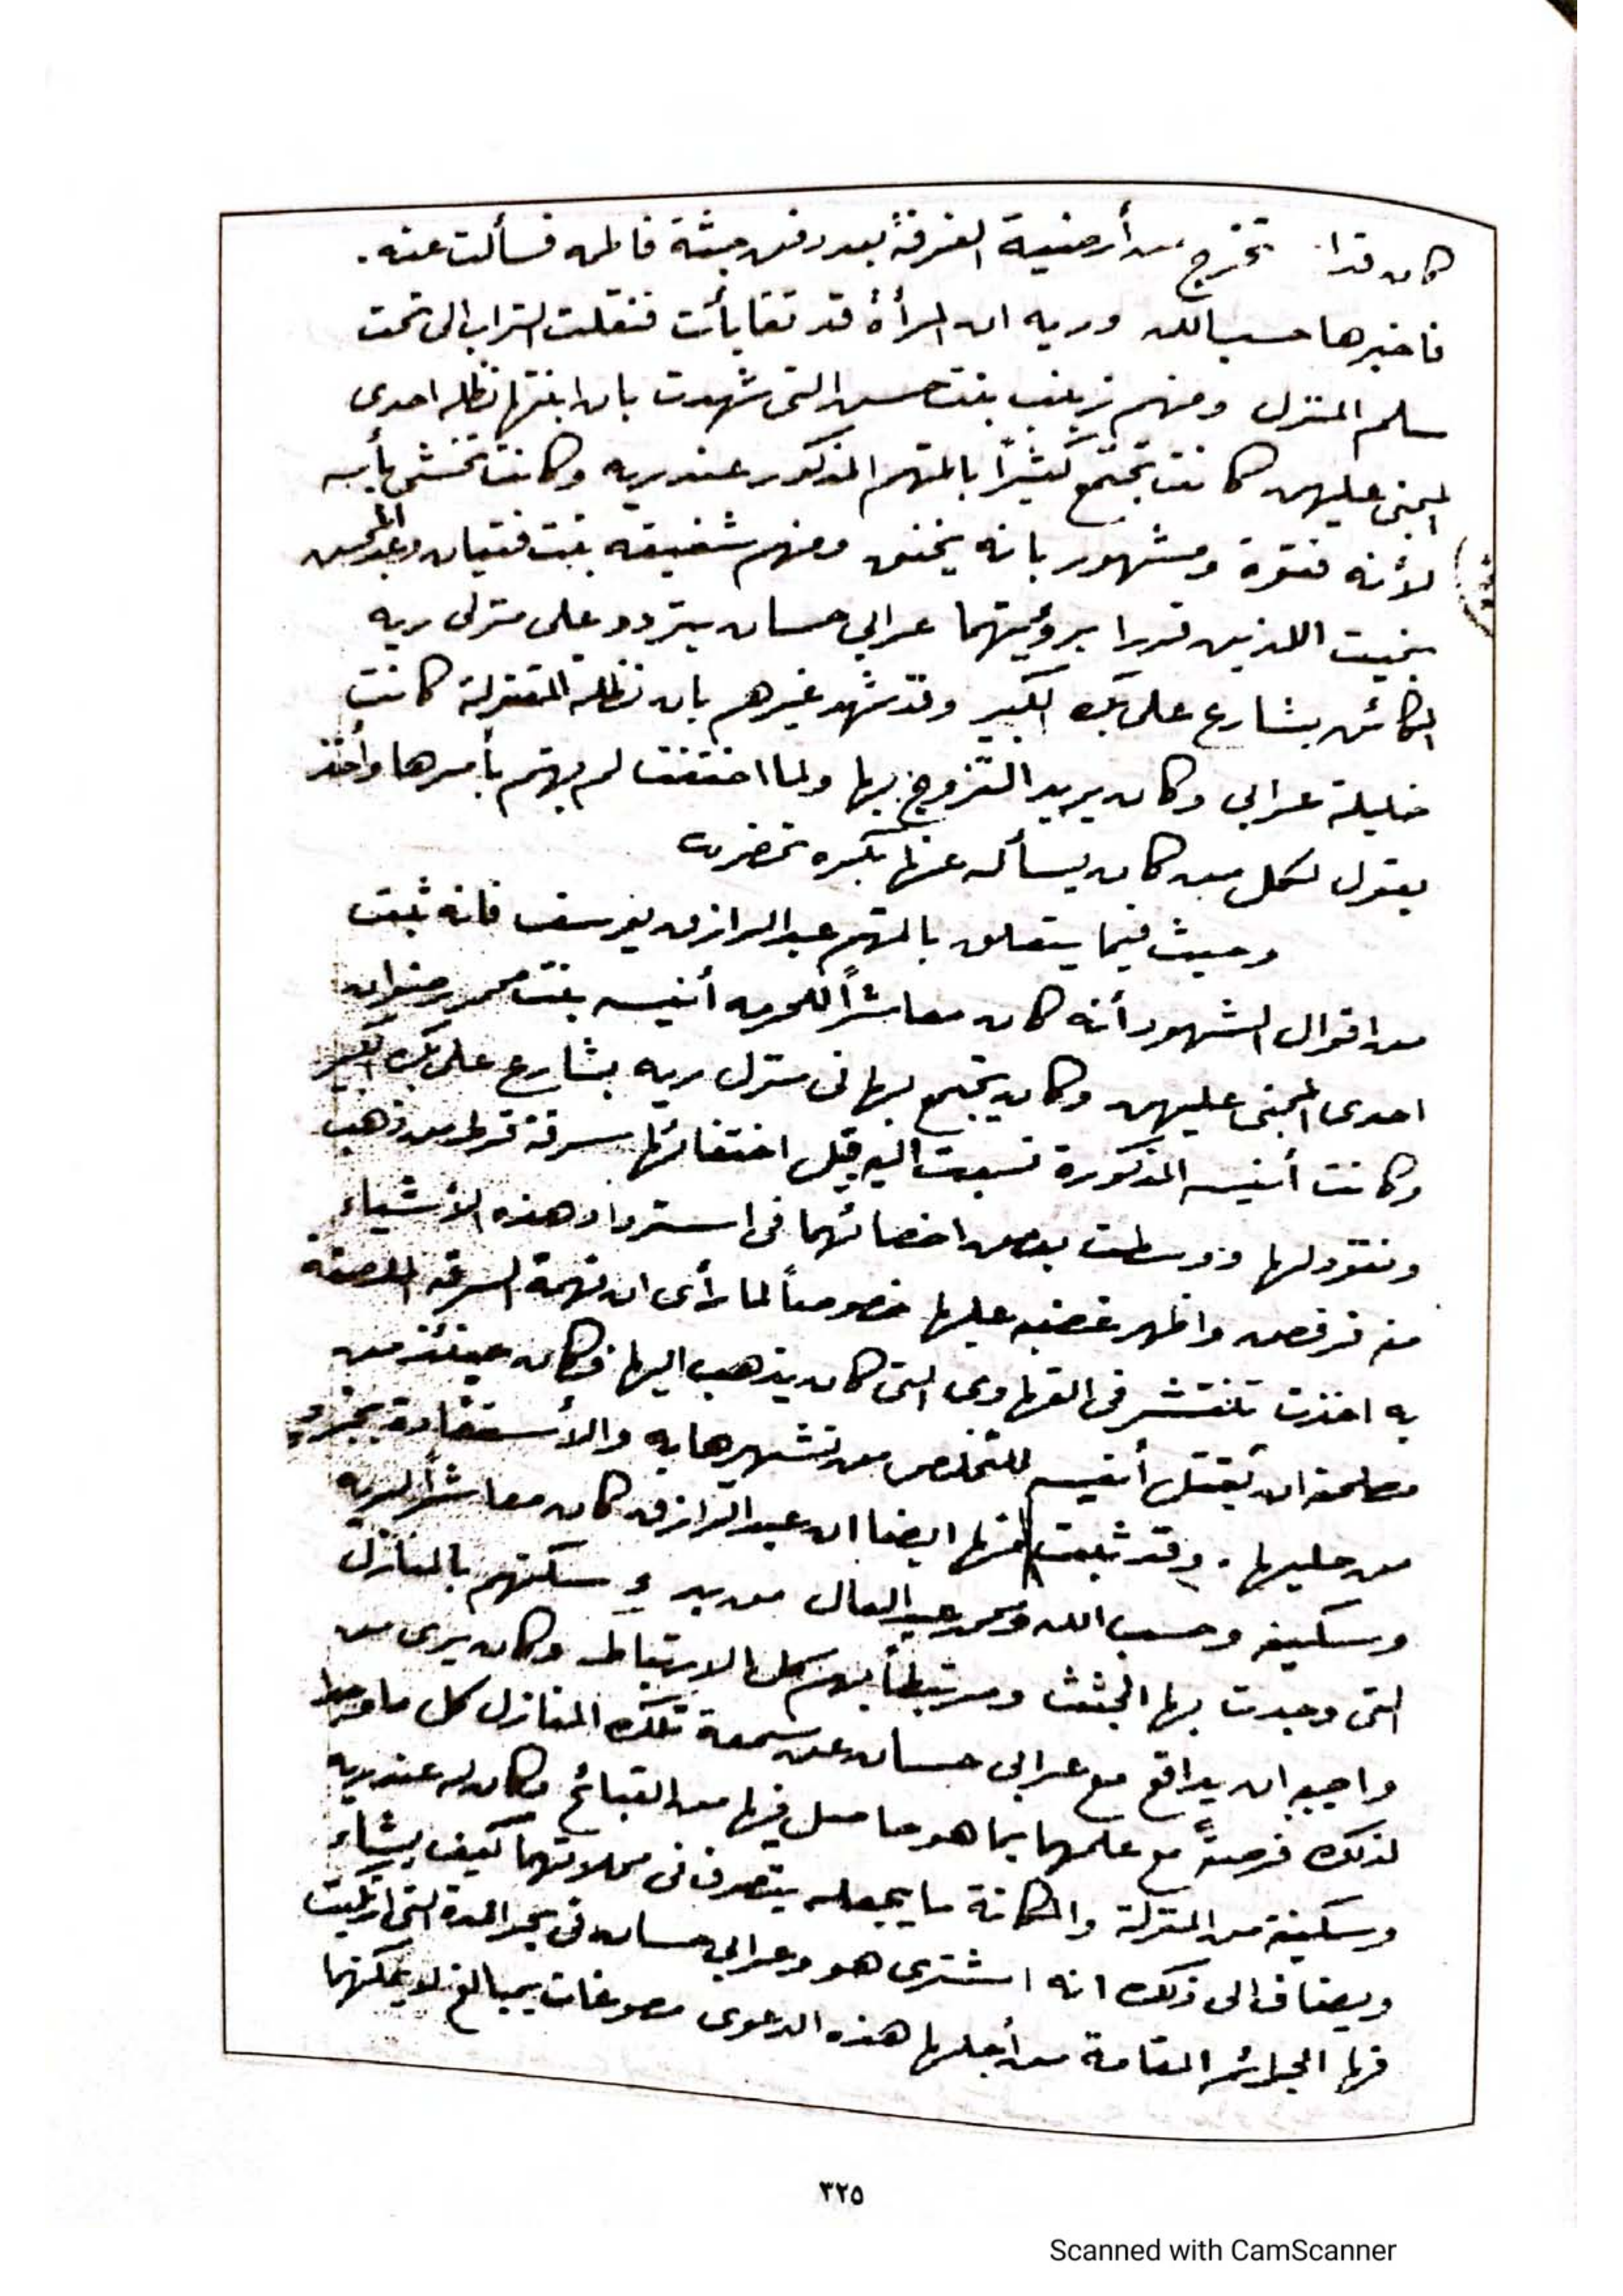 كان قذرا تخرج من أرضية الغرفة بعد دفن جثة فاطمه فسألت عنه.
فاخبرها حسب الله وريه ان المرأة قد تقايأت فنقلت التراب الى تحت
سلم المنزل ومنهم زينب بنت حسن التى شهدت بان ابنتها نظله احدى
المجنى عليهن كانت تجتمع كثيرًا بالمتهم المذكور عند ريه وكانت تخشى بأسه
لأنه فتوة ومشهور بانه يخنق ومنهم شفيقه بنت فتيان وعبد المحسن
بخيت اللذين قررا برؤيتهما عرابي حسان يتردد على منزلى ريه
الكائن بشارع على بك الكبير وقد شهد غيرهم بان نظله المقتولة كانت
خليلة عرابي وكان يريد التزوج بها ولما اختفت لم يهتم بأمرها وأخذ
يقول لكل من كان يسأله عنها بكره تحضر
وحيث فيما يتعلق بالمتهم عبد الرازق يوسف فانه ثبت
من اقوال الشهود أنه كان معاشراً للحرمه أنيسه بنت محمد رضوان
احدى المجنى عليهن وكان يجتمع بها فى منزل ريه بشارع على بك الكبير
وكانت أنيسه المذكورة نسبت اليه قبل اختفائها سرقة قرط من ذهب
ونقود لها ووسطت بعض اخصائهما فى استرداد هذه الأشياء
منه فرفض واظهر غضبه عليها خصوصاً لما رأى ان تهمة السرقه الملصقة
به اخذت تنتشر فى القهاوى التى كان يذهب اليها فكان حينئذ من
مصلحته ان يقتل أنيسه للتخلص من تشهيرها به والأستفادة بجزء
من حليها. وقد ثبت ايضا ان عبد الرازق كان معاشراً لريه
وسكينه وحسب الله ومحمد عبد العال من بدء سكنهم بالمنازل
التى وجدت بها الجثث ومرتبطاً بهم كل الارتباط وكان يرى من
واجبه ان يدافع مع عرابي حسان عن سمعة تلك المنازل كل ما وجدا
لذلك فرصةً مع علمهما بما هو حاصل فيها من القبائح وكان له عند ريه
وسكينة من المنزلة والمكانة ما يجعله يتصرف فى محلاتهما كيف يشاء
ويضاف الى ذلك انه اشترى هو وعرابي حسان فى بحر المدة التى ارتكبت
فيها الجرائم المقامة من أجلها هذه الدعوى مصوغات بمبالغ لا يمكنهما
٣٢٥
Scanned with CamScanner